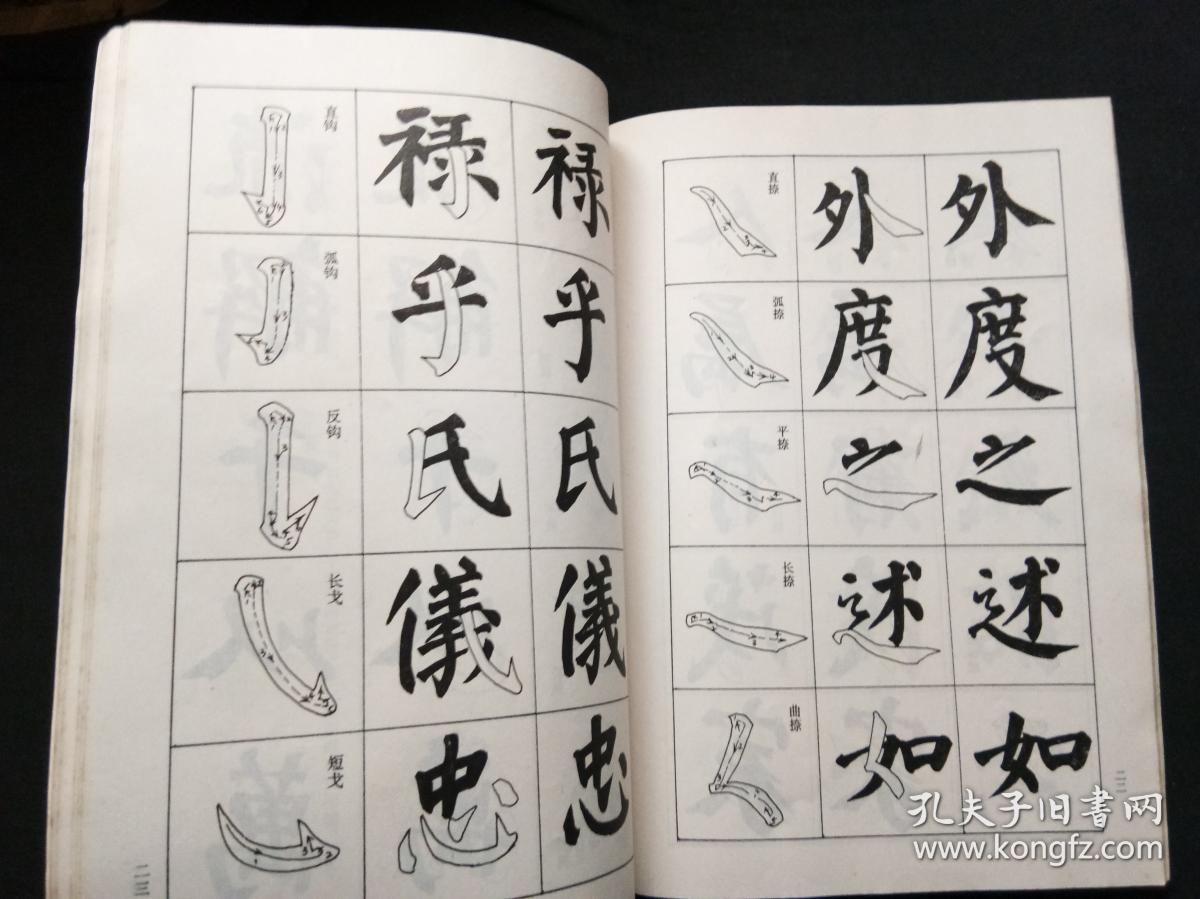 直钩 禄 禄
弧钩 乎 乎
反钩 氏 氏
长戈 儀 儀
短戈 忠 忠
直捺 外 外
弧捺 度 度
平捺 之 之
长捺 述 述
曲捺 如 如
孔夫子旧书网
www.kongfz.com